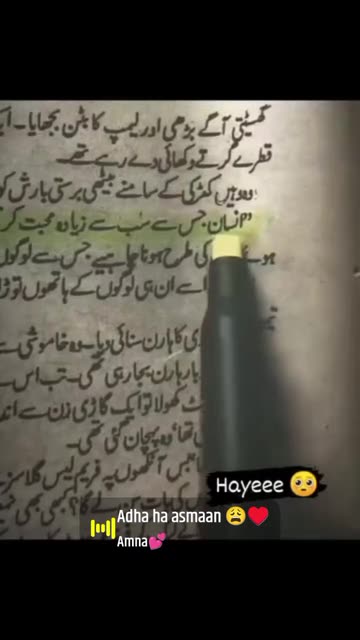 گھسیٹتی آگے بڑھی اور لیمپ کا بٹن بجھایا۔
قطرے گرتے دکھائی دے رہے تھے۔
وہ وہیں کھڑکی کے سامنے بیٹھی برستی بارش کو
”انسان جس سے سب سے زیادہ محبت کر
کی طرح ہونا چاہیے جس سے لوگوں
اسے ان ہی لوگوں کے ہاتھوں توڑا
کا ہارن سنائی دیا۔ وہ خاموشی سے
بار ہارن بجا رہی تھی۔ تب اس
کھولا تو ایک گاڑی زن سے اند
تھا، وہ پہچان گئی تھی۔
آنکھوں پہ فریم لیس گلاسز
کی بات کرے گا؟ کبھی بھی نہیں
Hayeee 🥺
Adha ha asmaan 😩❤️
Amna💕